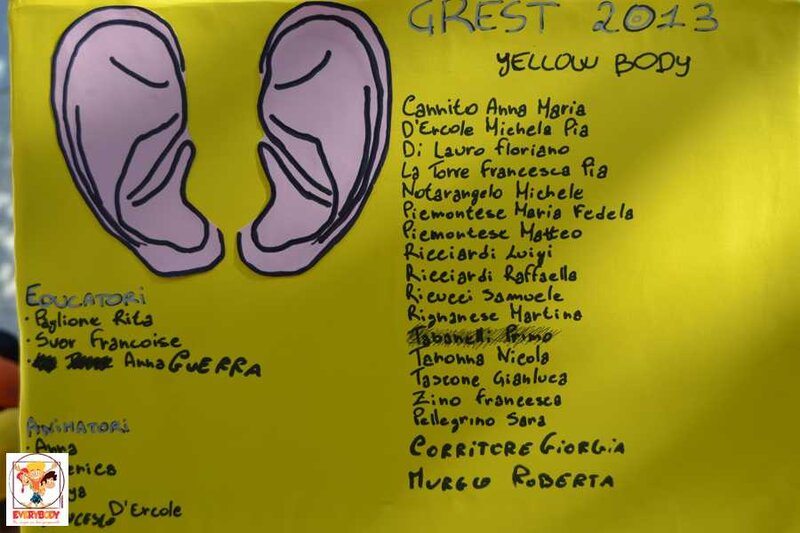 GREST 2013
YELLOW BODY
Cannito Anna Maria
D'Ercole Michela Pia
Di Lauro Floriano
La Torre Francesca Pia
Notarangelo Michele
Piemontese Maria Fedela
Piemontese Matteo
Ricciardi Luigi
Ricciardi Raffaella
Ricucci Samuele
Rignanese Martina
Primo
Taronna Nicola
Tascone Gianluca
Zino Francesca
Pellegrino Sara
CORRITORE GIORGIA
MURGO ROBERTA
EDUCATORI
• Paglione Rita
• Suor Francoise
• Anna GUERRA
ANIMATORI
• Anna
D'Ercole
EVERYBODY